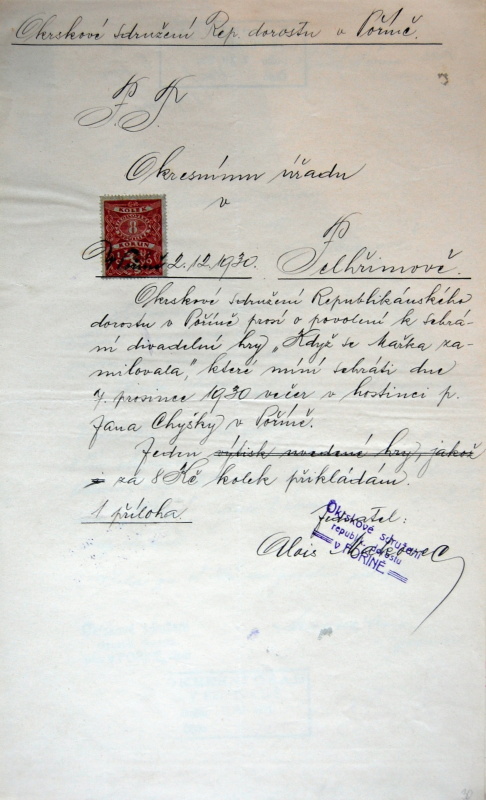 Okrskové sdružení Rep. dorostu v Pořínč.
P. T.
Okresnímu úřadu
v
KOLEK
8
KORUN
2.12.1930. Pelhřimově.
Okrskové sdružení Republikánského
dorostu v Pořínč prosí o povolení k sehrá
ní divadelní hry „Když se Mařka za-
milovala", které míní sehráti dne
7. prosince 1930 večer v hostinci p.
Jana Chyšky v Pořínč.
Jeden výtisk uvedené hry, jakož
i za 8 Kč kolek přikládám.
1 příloha.
Jednatel:
Okrskové Sdružení
republ. dorostu
v POŘÍNĚ
Alois